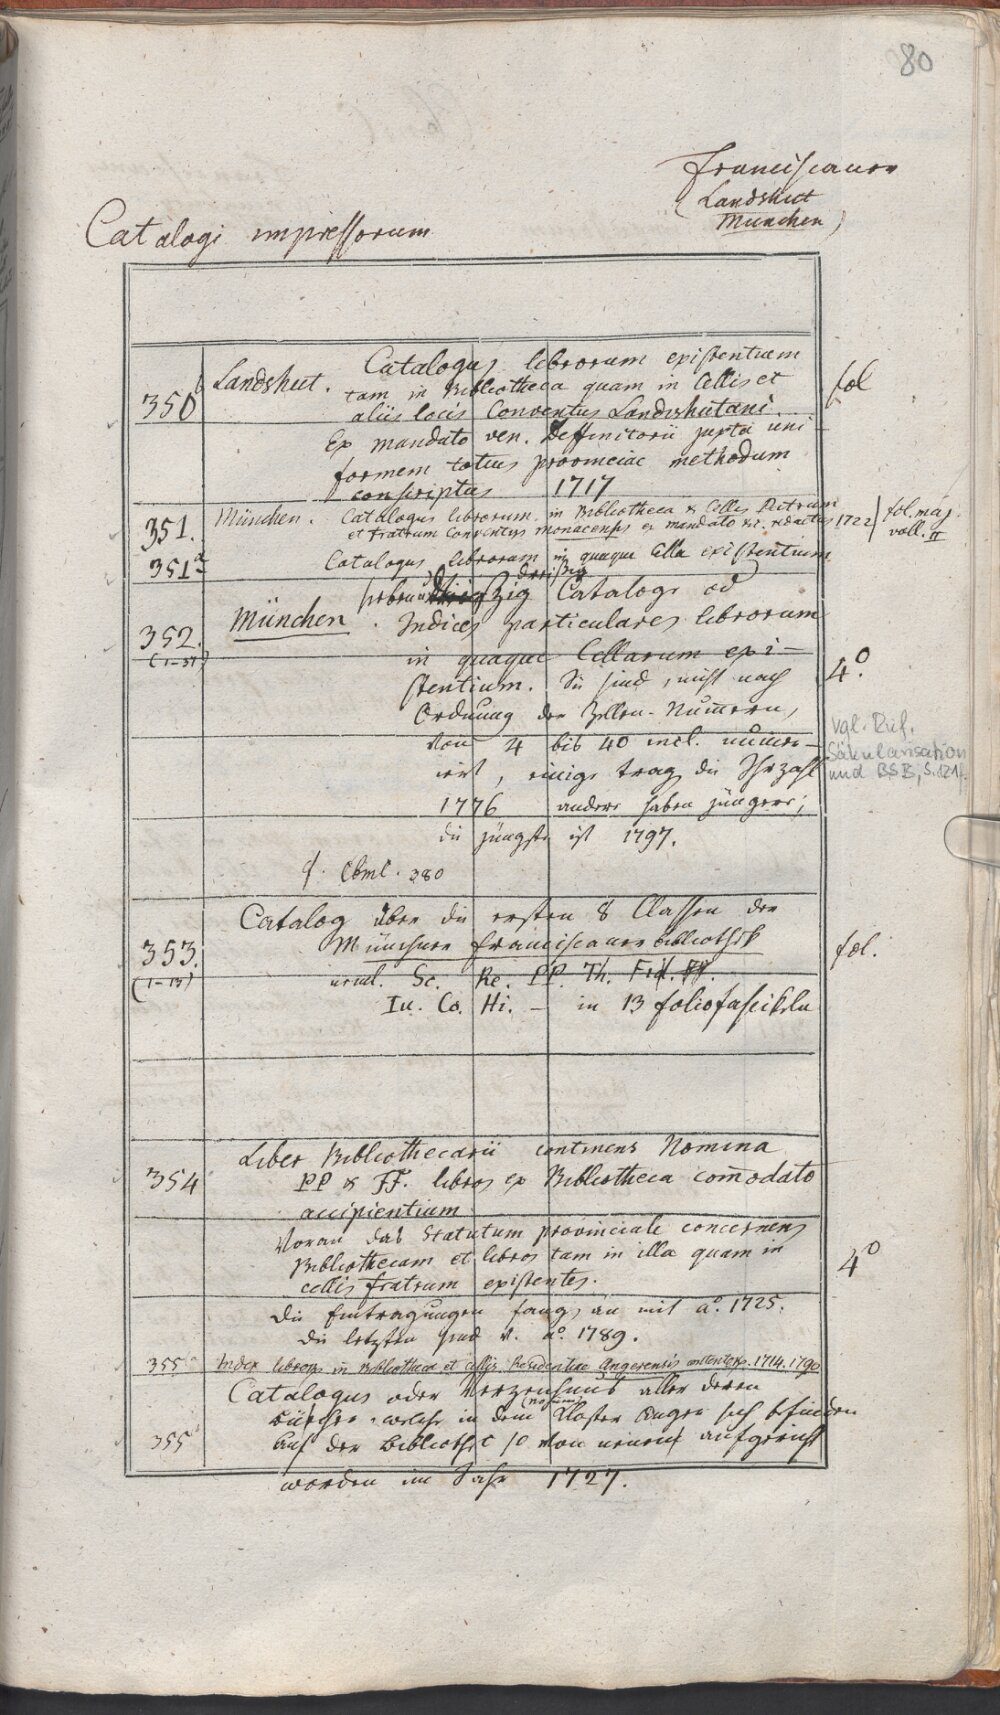 80
Franciscaner
(Landshut
München)
Catalogi impressorum
350b Landshut. Catalogus librorum existentium fol
tam in Bibliotheca quam in Cellis et
aliis locis Conventus Landishutani.
Ex mandato ven. Deffinitorii juxta uni-
formem totius provinciae methodum
conscriptus 1717
351. München. Catalogus librorum in Bibliotheca & Cellis Patrum fol. maj.
et fratrum Conventus Monacensis ex mandato &c. redactus 1722 voll. II
351a Catalogus librorum in quaque Cella existentium
dreißig
352. München. zig Catalogi od
(1-37) Indices particulares librorum
in quaque Cellarum exi- 4o.
stentium. Sie sind, nicht nach
Ordnung der Zellen-Nummern,
von 4 bis 40 incl. nume-
rirt, einige trag. die Jhrzahl
1776 andere haben jüngere;
die jüngste ist 1797.
vgl. Ruf,
Säkularisation
und BSB, S. 121f.
cf. Cbml. 380
353. Catalog über die ersten 8 Classen der
(1-13) Münchner Franciscaner bibliothek fol.
neml. Sc. Re. PP. Th.
Iu. Co. Hi. – in 13 foliofascikeln
354 Liber Bibliothecarii continens Nomina
PP & FF. libros ex Bibliotheca com̄odato
accipientium
Voran das Statutum provinciale concernens
Bibliothecam et libros tam in illa quam in 4o
cellis fratrum existentes.
Die Eintragungen fang. an mit ao. 1725.
die letzten sind v. ao. 1789.
355 Index libror. in Bibliotheca et cellis Residentiae Angerensis 1714. 1790
Catalogus oder Verzeichnus aller deren
Bücher welche in dem Closter Anger sich befinden
355b Auf der Bibliothec so von neuem aufgericht
worden im Jahr 1727.